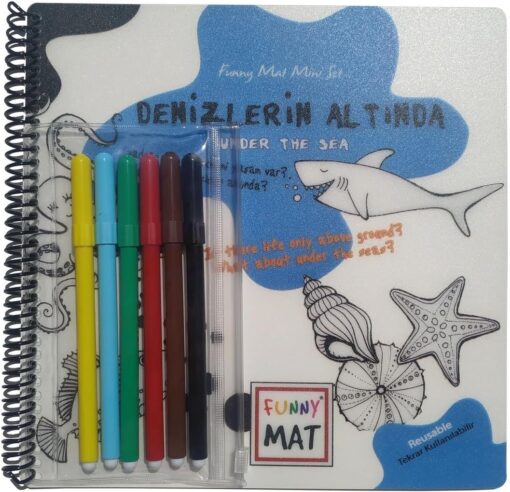 Funny Mat Mini Set
DENİZLERİN ALTINDA
UNDER THE SEA
var?
there life only above ground?
about under the seas?
FUNNY
MAT
Reusable
Tekrar Kullanılabilir